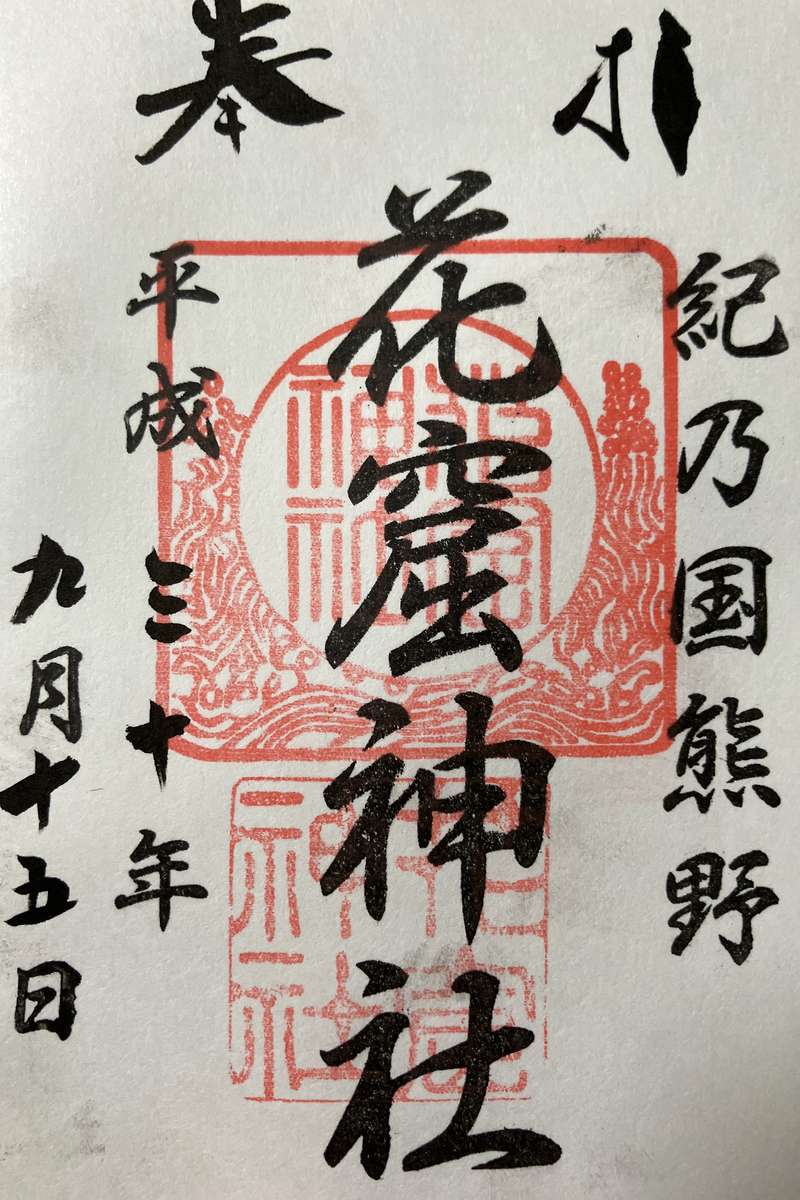 奉拝
紀乃国熊野
花窟神社
平成三十年
九月十五日
花窟
神社
花窟
神社